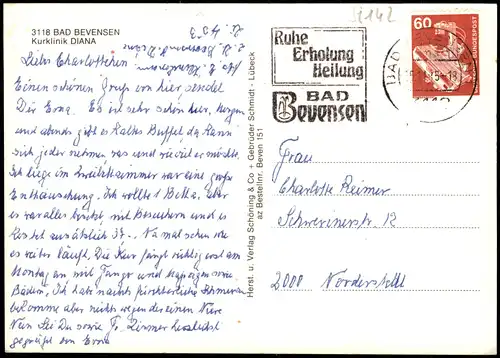 3118 BAD BEVENSEN
Kurklinik DIANA
Liebe Charlottchen
Einen schönen Gruß von hier sendet
Dir Erna. Es ist sehr schön hier, morgen
und abends gibt es Kaltes Büffet, da kann
sich jeder nehmen, was und wieviel er möchte.
Ich liege im Zweibettzimmer war eine große
Enttäuschung. Ich wollte 1 Bett, aber
es war alles besetzt, mit Besuchern und es
kostet zusätzlich 37,- Na mal sehen wie
es weiter läuft. Die Kur fängt richtig erst am
Montag an mit Tango und Massagen sowie
Bäder, Ich habe nachts fürchterliche Schmerzen
bekomme aber nichts wegen der einen Niere
Nun Sei Du sowie Fr. Zimmer herzlichst
gegrüßt von Erna
Herst. u. Verlag Schöning & Co + Gebrüder Schmidt · Lübeck
az Bestellnr. Beven 151
Ruhe
Erholung
Heilung
BAD
Bevensen
BAD
60
DEUTSCHE BUNDESPOST
Frau
Charlotte Reimer
Schwerinerstr. 12
2000 Norderstedt